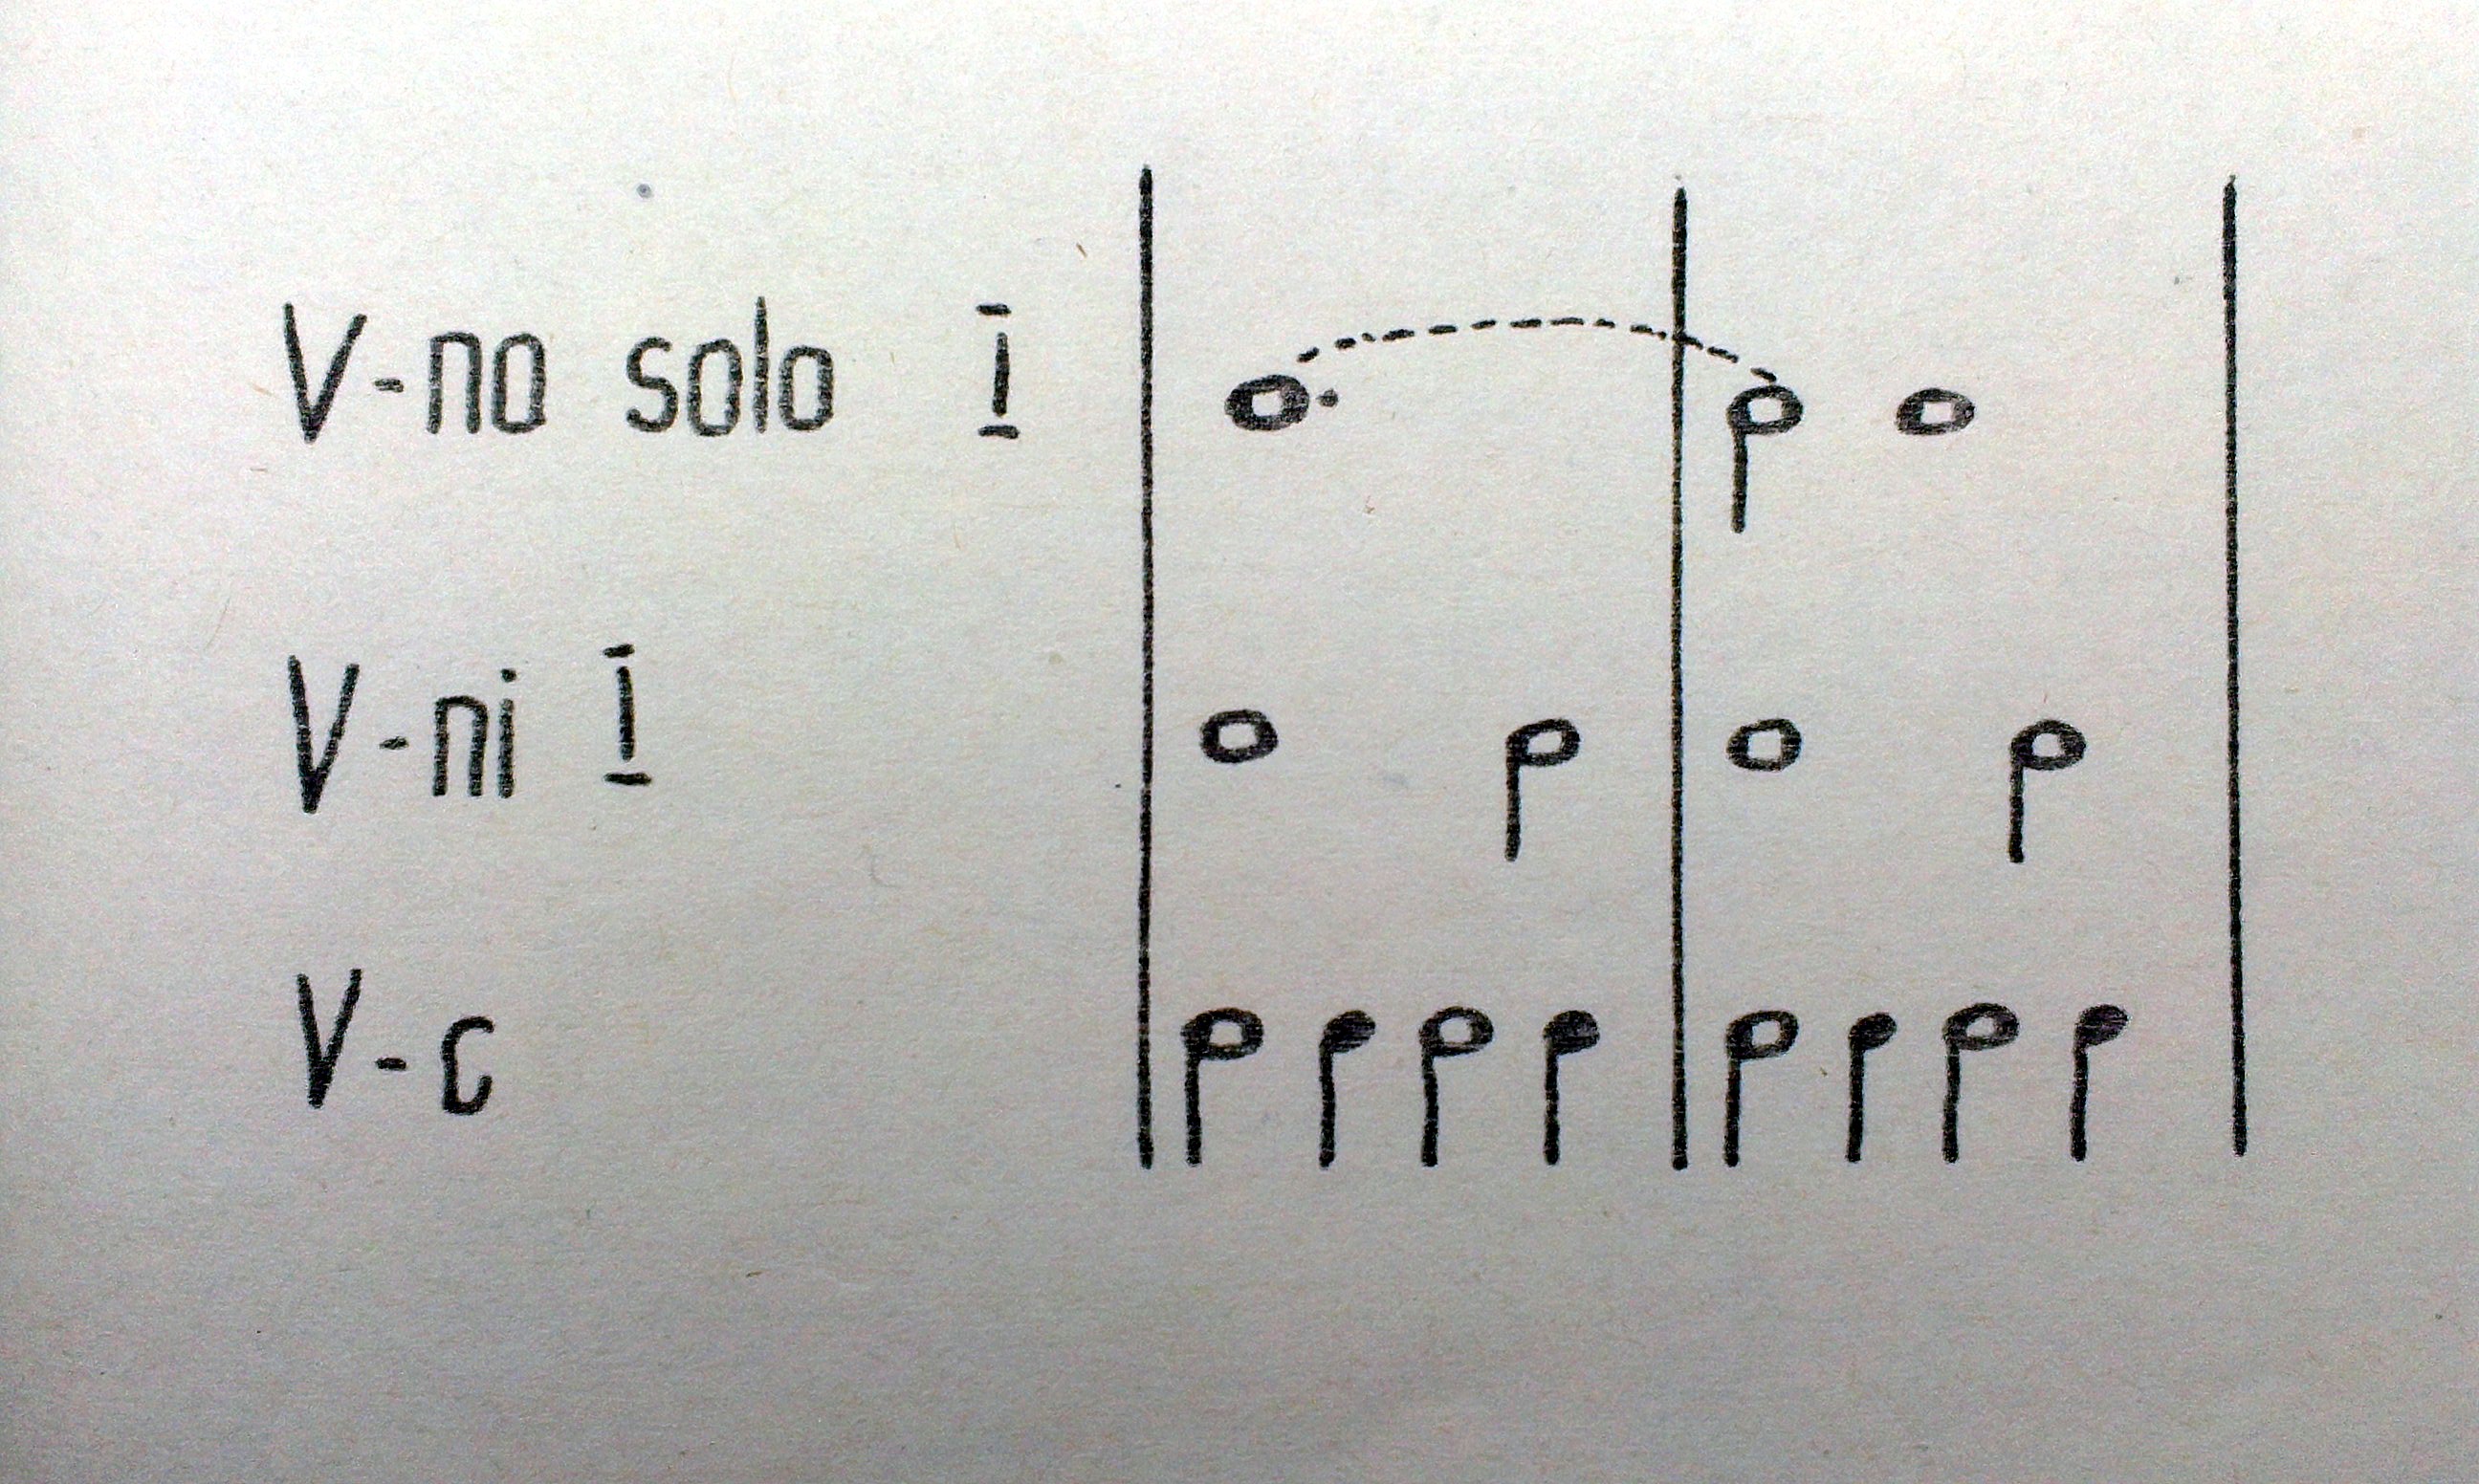 V-no solo I
V-ni I
V-c